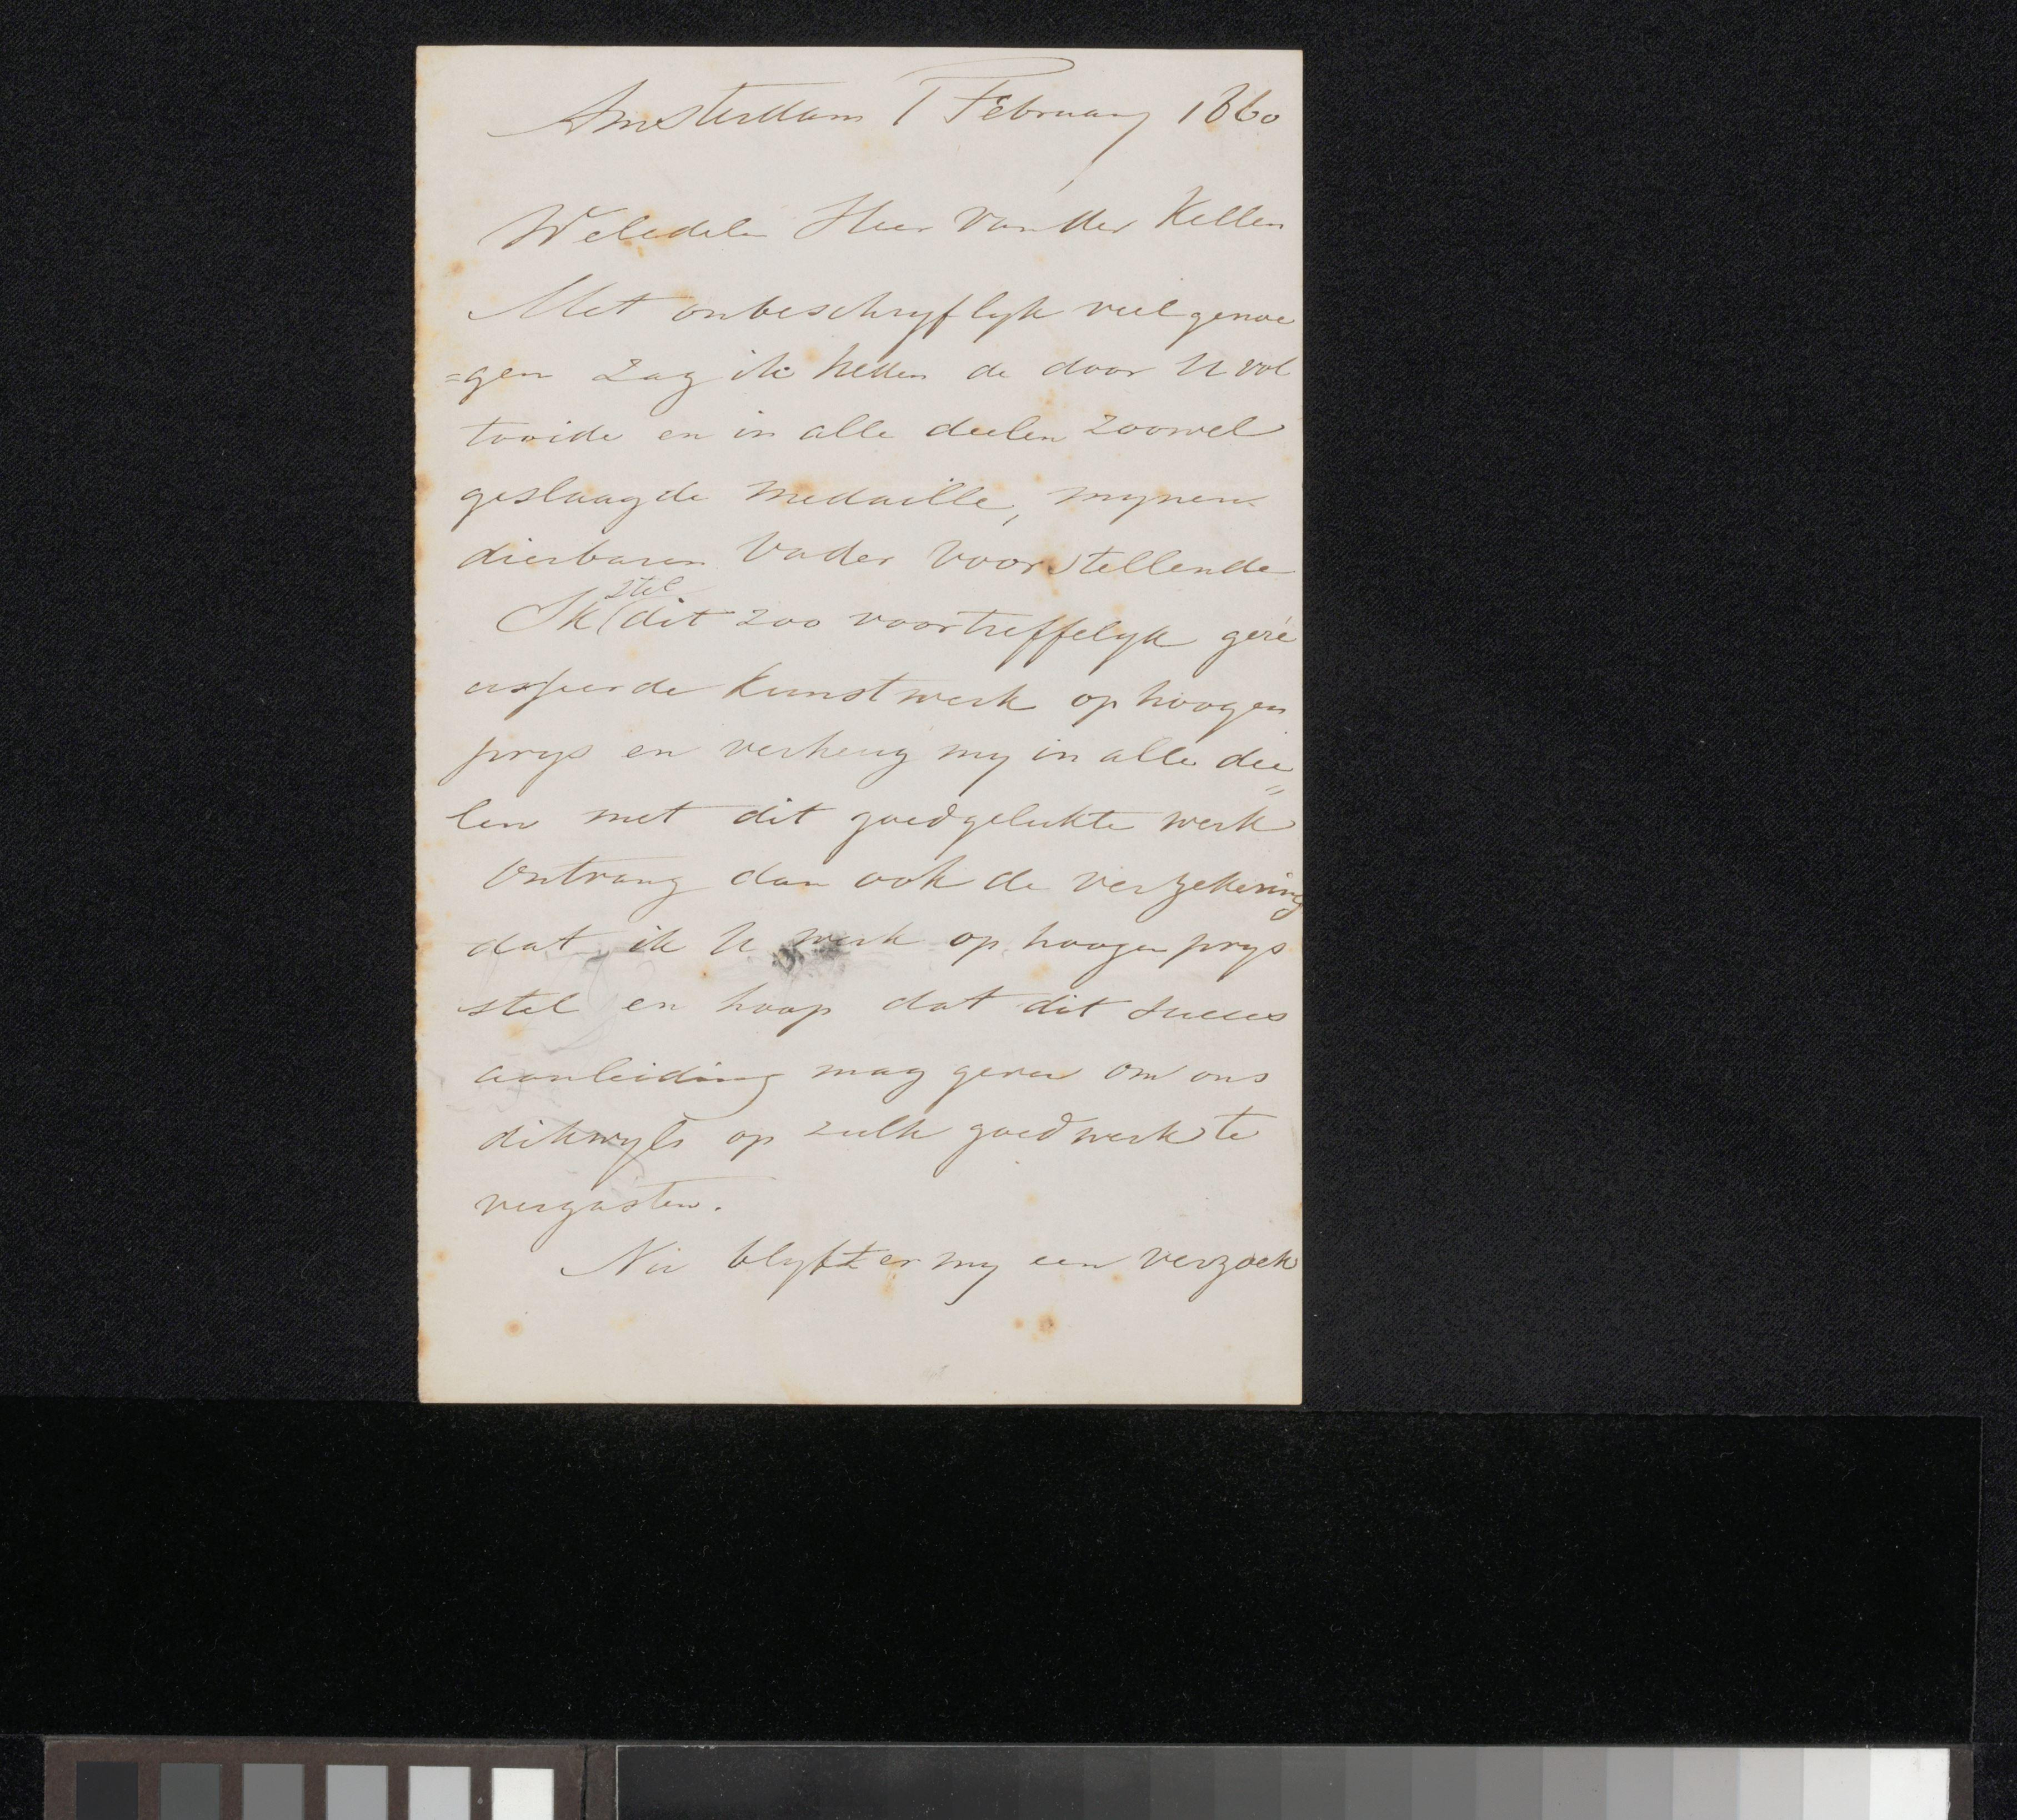 Amsterdam 1 February 1860
Weledele Heer van der Kellen
Met onbeschryflyk veel genoe
=gen zag ik heden de door U vol
tooide en in alle deelen zoowel
geslaagde medaille, mynen
dierbaren Vader voorstellende
stel
Ik (dit zoo voortreffelyk geré
usseerde kunstwerk op hoogen
prys en verheug my in alle dee
=
len met dit goedgelukte werk
Ontvang dan ook de verzekering
dat ik U werk op hoogen prys
stel en hoop dat dit succes
aanleiding mag geven om ons
dikwyls op zulk goed werk te
vergasten.
Nu blyft er my een verzoek